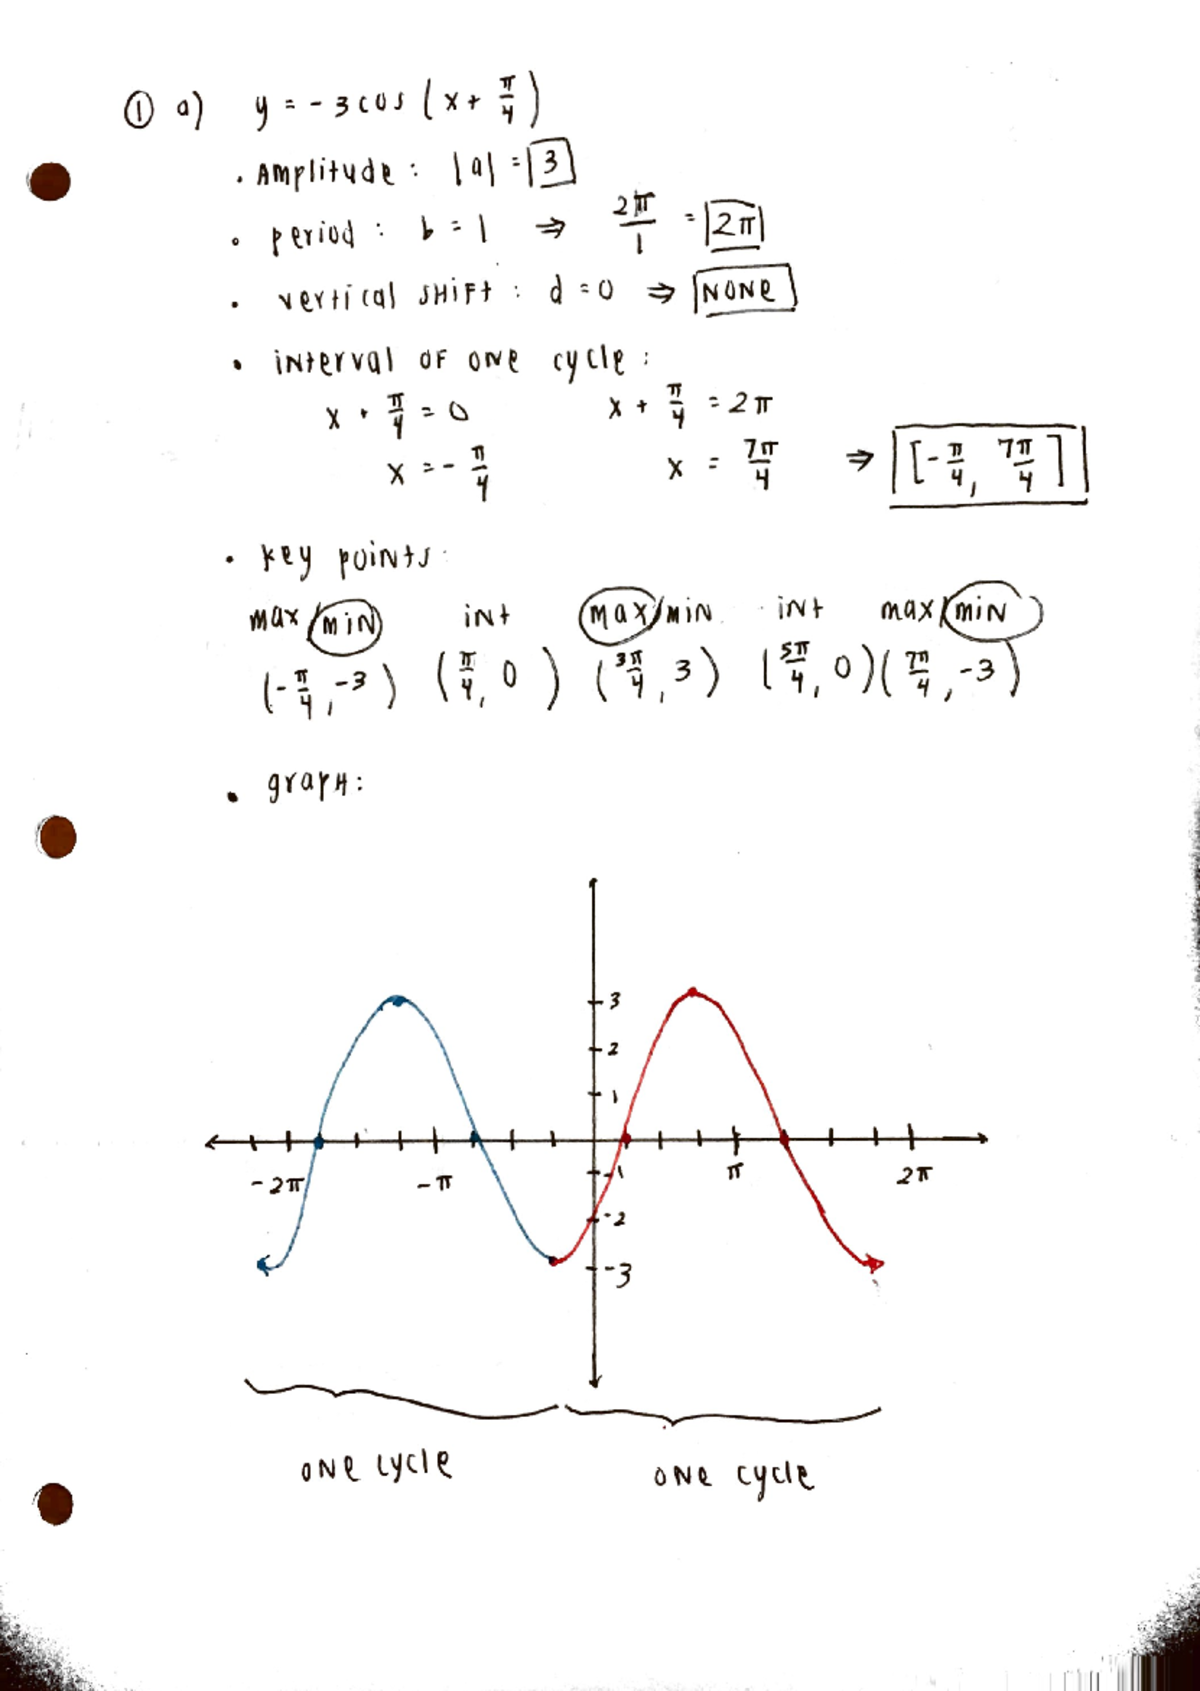 ① a) y = -3cos(x + π/4)
• Amplitude: |a| = 3
• period: b = 1 ⇒ 2π/1 = 2π
• vertical SHIFT: d = 0 ⇒ NONE
• interval OF ONE cycle:
x + π/4 = 0 x + π/4 = 2π
x = -π/4 x = 7π/4 ⇒ [-π/4, 7π/4]
• key points:
max/min int max/min int max/min
(-π/4, -3) (π/4, 0) (3π/4, 3) (5π/4, 0) (7π/4, -3)
• graPH:
3
2
1
-1
-2π -π π 2π
-2
-3
ONE cycle ONE cycle